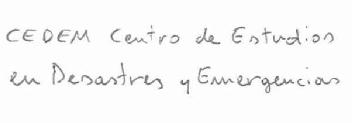 CEDEM Centro de Estudios
en Desastres y Emergencias